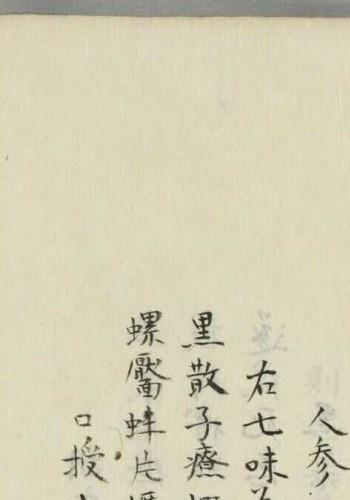 人参
右七味
黒散子療
螺靨蚌片
口授